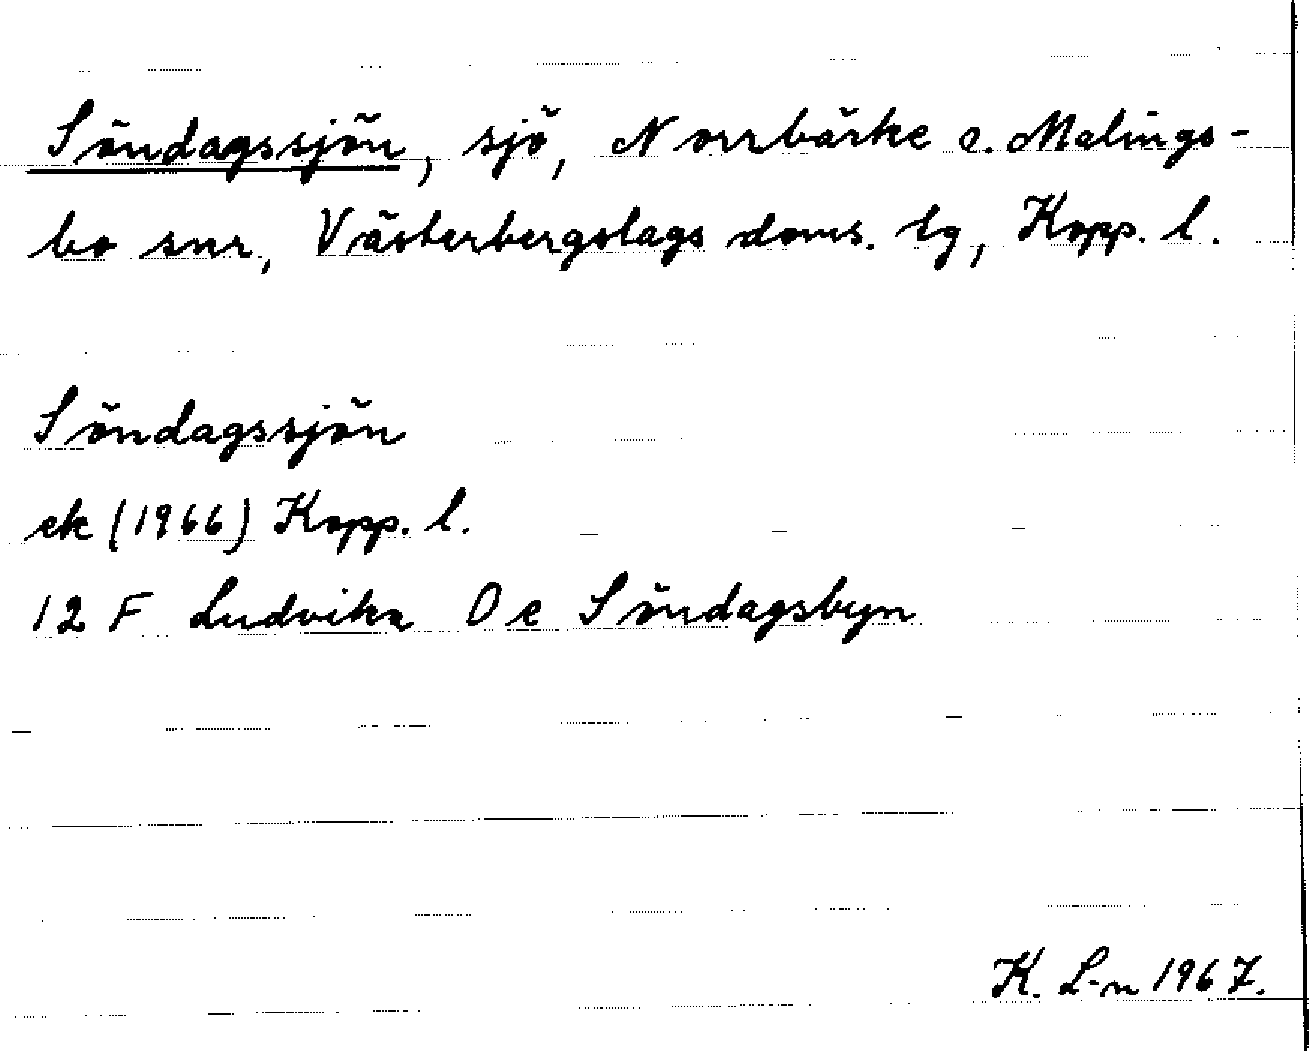 Söndagssjön, sjö, Norrbärke o. Malings-
bo snr, Västerbergslags doms. tg, Kopp. l.
Söndagssjön
ek (1966) Kopp. l.
12 F Ludvika 0 e Söndagsbyn
K. L-n 1967.